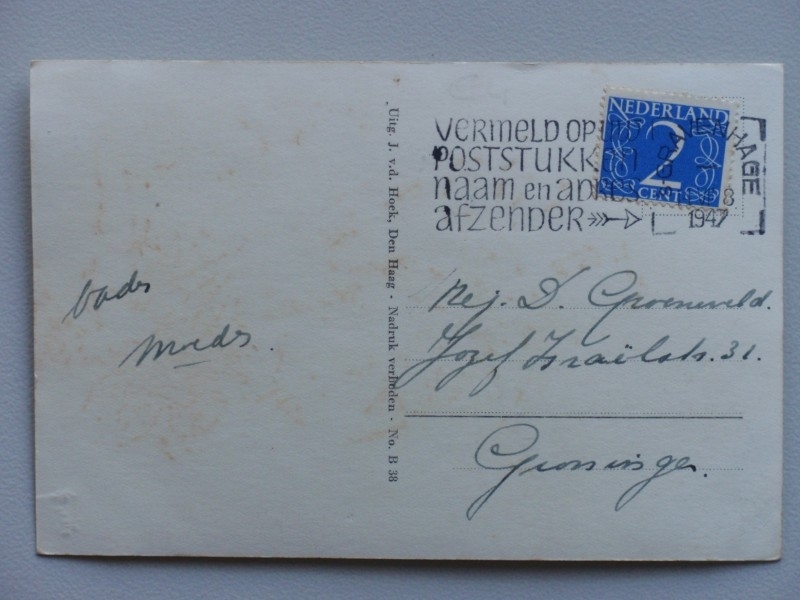 vader
moeder.
Uitg. J. v.d. Hoek, Den Haag - Nadruk verboden - No. B 38
VERMELD OP
POSTSTUKK
naam en adres
afzender
NEDERLAND
2
CENT
GRAVENHAGE
8
1947
Mej. D. Groeneveld.
Jozef Israëlstr. 31.
Groningen.